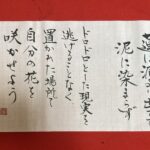 蓮は泥より出でて
泥に染まらず
ドロドロとした現実から
逃げることなく
置かれた場所で
自分の花を
咲かせよう